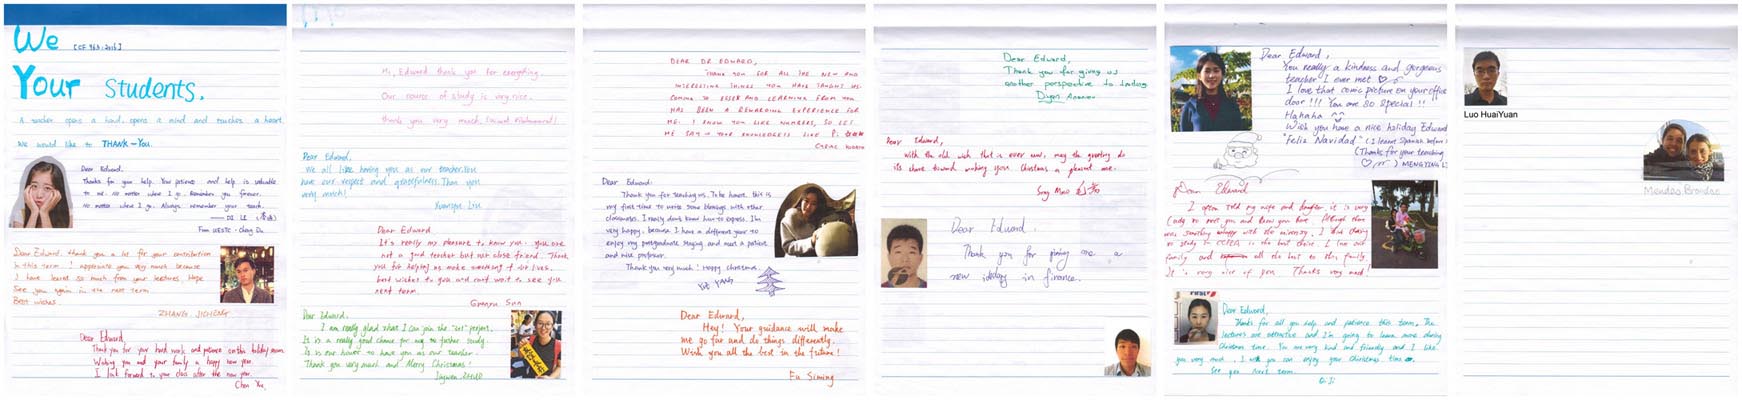 We [CF 963: 2016]
Your Students.
A teacher opens a hand, opens a mind and touches a heart.
We would like to THANK-You.
Dear Edward.
Thanks for your help. Your patience and help is valuable
to me. No matter where I go. Remember you forever.
No matter where I go. Always remember your teach.
—— DI LI
From UESTC - Cheng Du
Dear Edward, thank you a lot for your contribution
in this term! I appreciate you very much because
I have learnt so much from your lectures. Hope
See you again in the next term.
Best wishes.
ZHANG JICHENG
Dear Edward,
Thank you for your hard work and patience on this holiday season.
Wishing you and your family a happy new year.
I look forward to your class after the new year.
Chen Xu.
Hi, Edward thank you for everything.
Our course of study is very nice.
thank you very much.
Dear Edward,
We all like having you as our teacher. You
have our respect and gratefulness. Thank you
very much!
Liu
Dear Edward
It's really my pleasure to know you. You are
not a good teacher but our close friend. Thank
you for helping us make something of our lives.
best wishes to you and can't wait to see you
next term.
Sun
Dear Edward,
I am really glad that I can join the project.
It is a really good chance for my to further study.
It is our honor to have you as our teacher.
Thank you very much and Merry Christmas!
DEAR DR EDWARD,
THANK YOU FOR ALL THE NEW AND
INTERESTING THINGS YOU HAVE TAUGHT US.
COMING TO ESSEX AND LEARNING FROM YOU
HAS BEEN A REWARDING EXPERIENCE FOR
ME. I KNOW YOU LIKE NUMBERS, SO LET
ME SAY - YOUR KNOWLEDGE IS LIKE
Dear Edward:
Thank you for teaching us. To be honest, this is
my first time to write some blessings with other
classmates. I really don't know how to express. I'm
very happy, because I have a different year to
enjoy my postgraduate studying, and meet a patient
and nice professor.
Thank you very much! Happy Christmas.
YANG
Dear Edward,
Hey! Your guidance will make
me go far and do things differently.
Wish you all the best in the future!
Fu Siming
Dear Edward,
Thank you for giving us
another perspective to trading.
Dear Edward,
with the old wish that is ever new, may the greeting do
its share toward making your Christmas a pleasant one.
Song Miao
Dear Edward.
Thank you for giving me a
new ideology in finance.
Dear Edward,
You really a kindness and gorgeous
teacher I ever met ♡
I love that comic picture on your office
door!!! You are so special!!
Hahaha ^^
Wish you have a nice holiday Edward
"Feliz Navidad" (I learnt Spanish before)
(Thanks for your teaching
♡) MENGYING LI
Dear Edward
I often told my wife and daughter it is very
lucky to meet you and know you here. Although there
was something unhappy with the university. I think choosing
to study in CCFEA is the best choice. I love our
family and all the best to this family.
It is very nice of you. Thanks very much!
Dear Edward,
Thanks for all you help and patience this term. The
lectures are attractive and I'm going to learn more during
Christmas time. You are very kind and friendly and I like
you very much. I wish you can enjoy your Christmas time.
See you next term.
Qi Ji
Luo HuaiYuan
Mendes Brandao